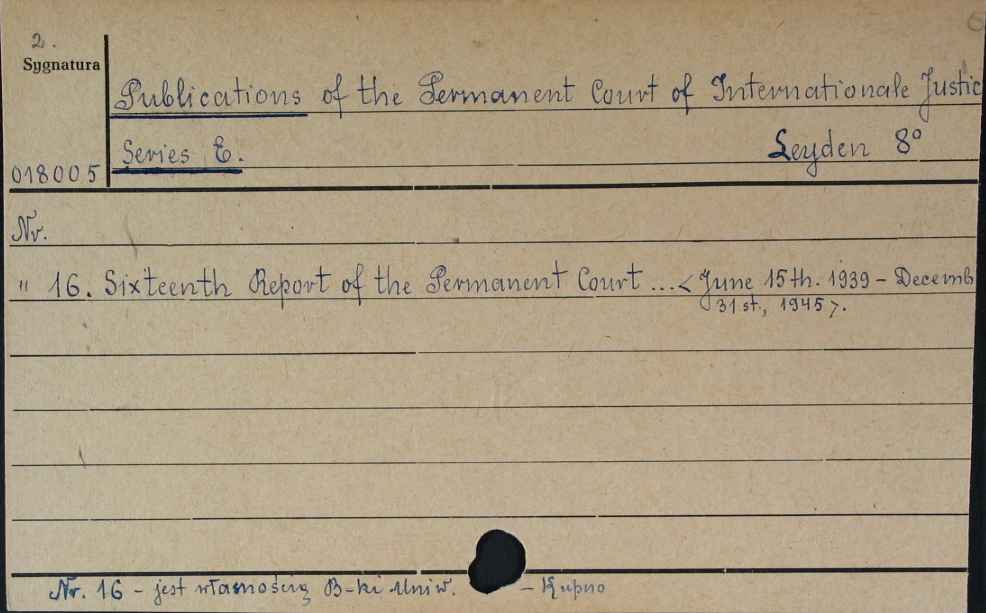 2.
Sygnatura
Publications of the Permanent Court of Internationale Justic
Series E. Leyden 8°
018005
Nr.
" 16. Sixteenth Report of the Permanent Court ... < June 15th. 1939 - Decemb
31 st., 1945 >.
Nr. 16 - jest własnością B-ki Uniw. - Kupno